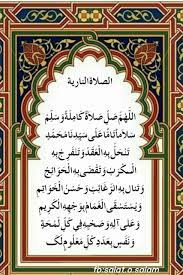 الصلاة النارية
اللهم صل صلاة كاملة وسلم
سلاما تاما على سيدنا محمد
تنحل به العقد وتنفرج به
الكرب وتقضى به الحوائج
وتنال به الرغائب وحسن الخواتم
ويستسقى الغمام بوجهه الكريم
وعلى آله وصحبه في كل لمحة
ونفس بعدد كل معلوم لك
fb:salat.o.salam